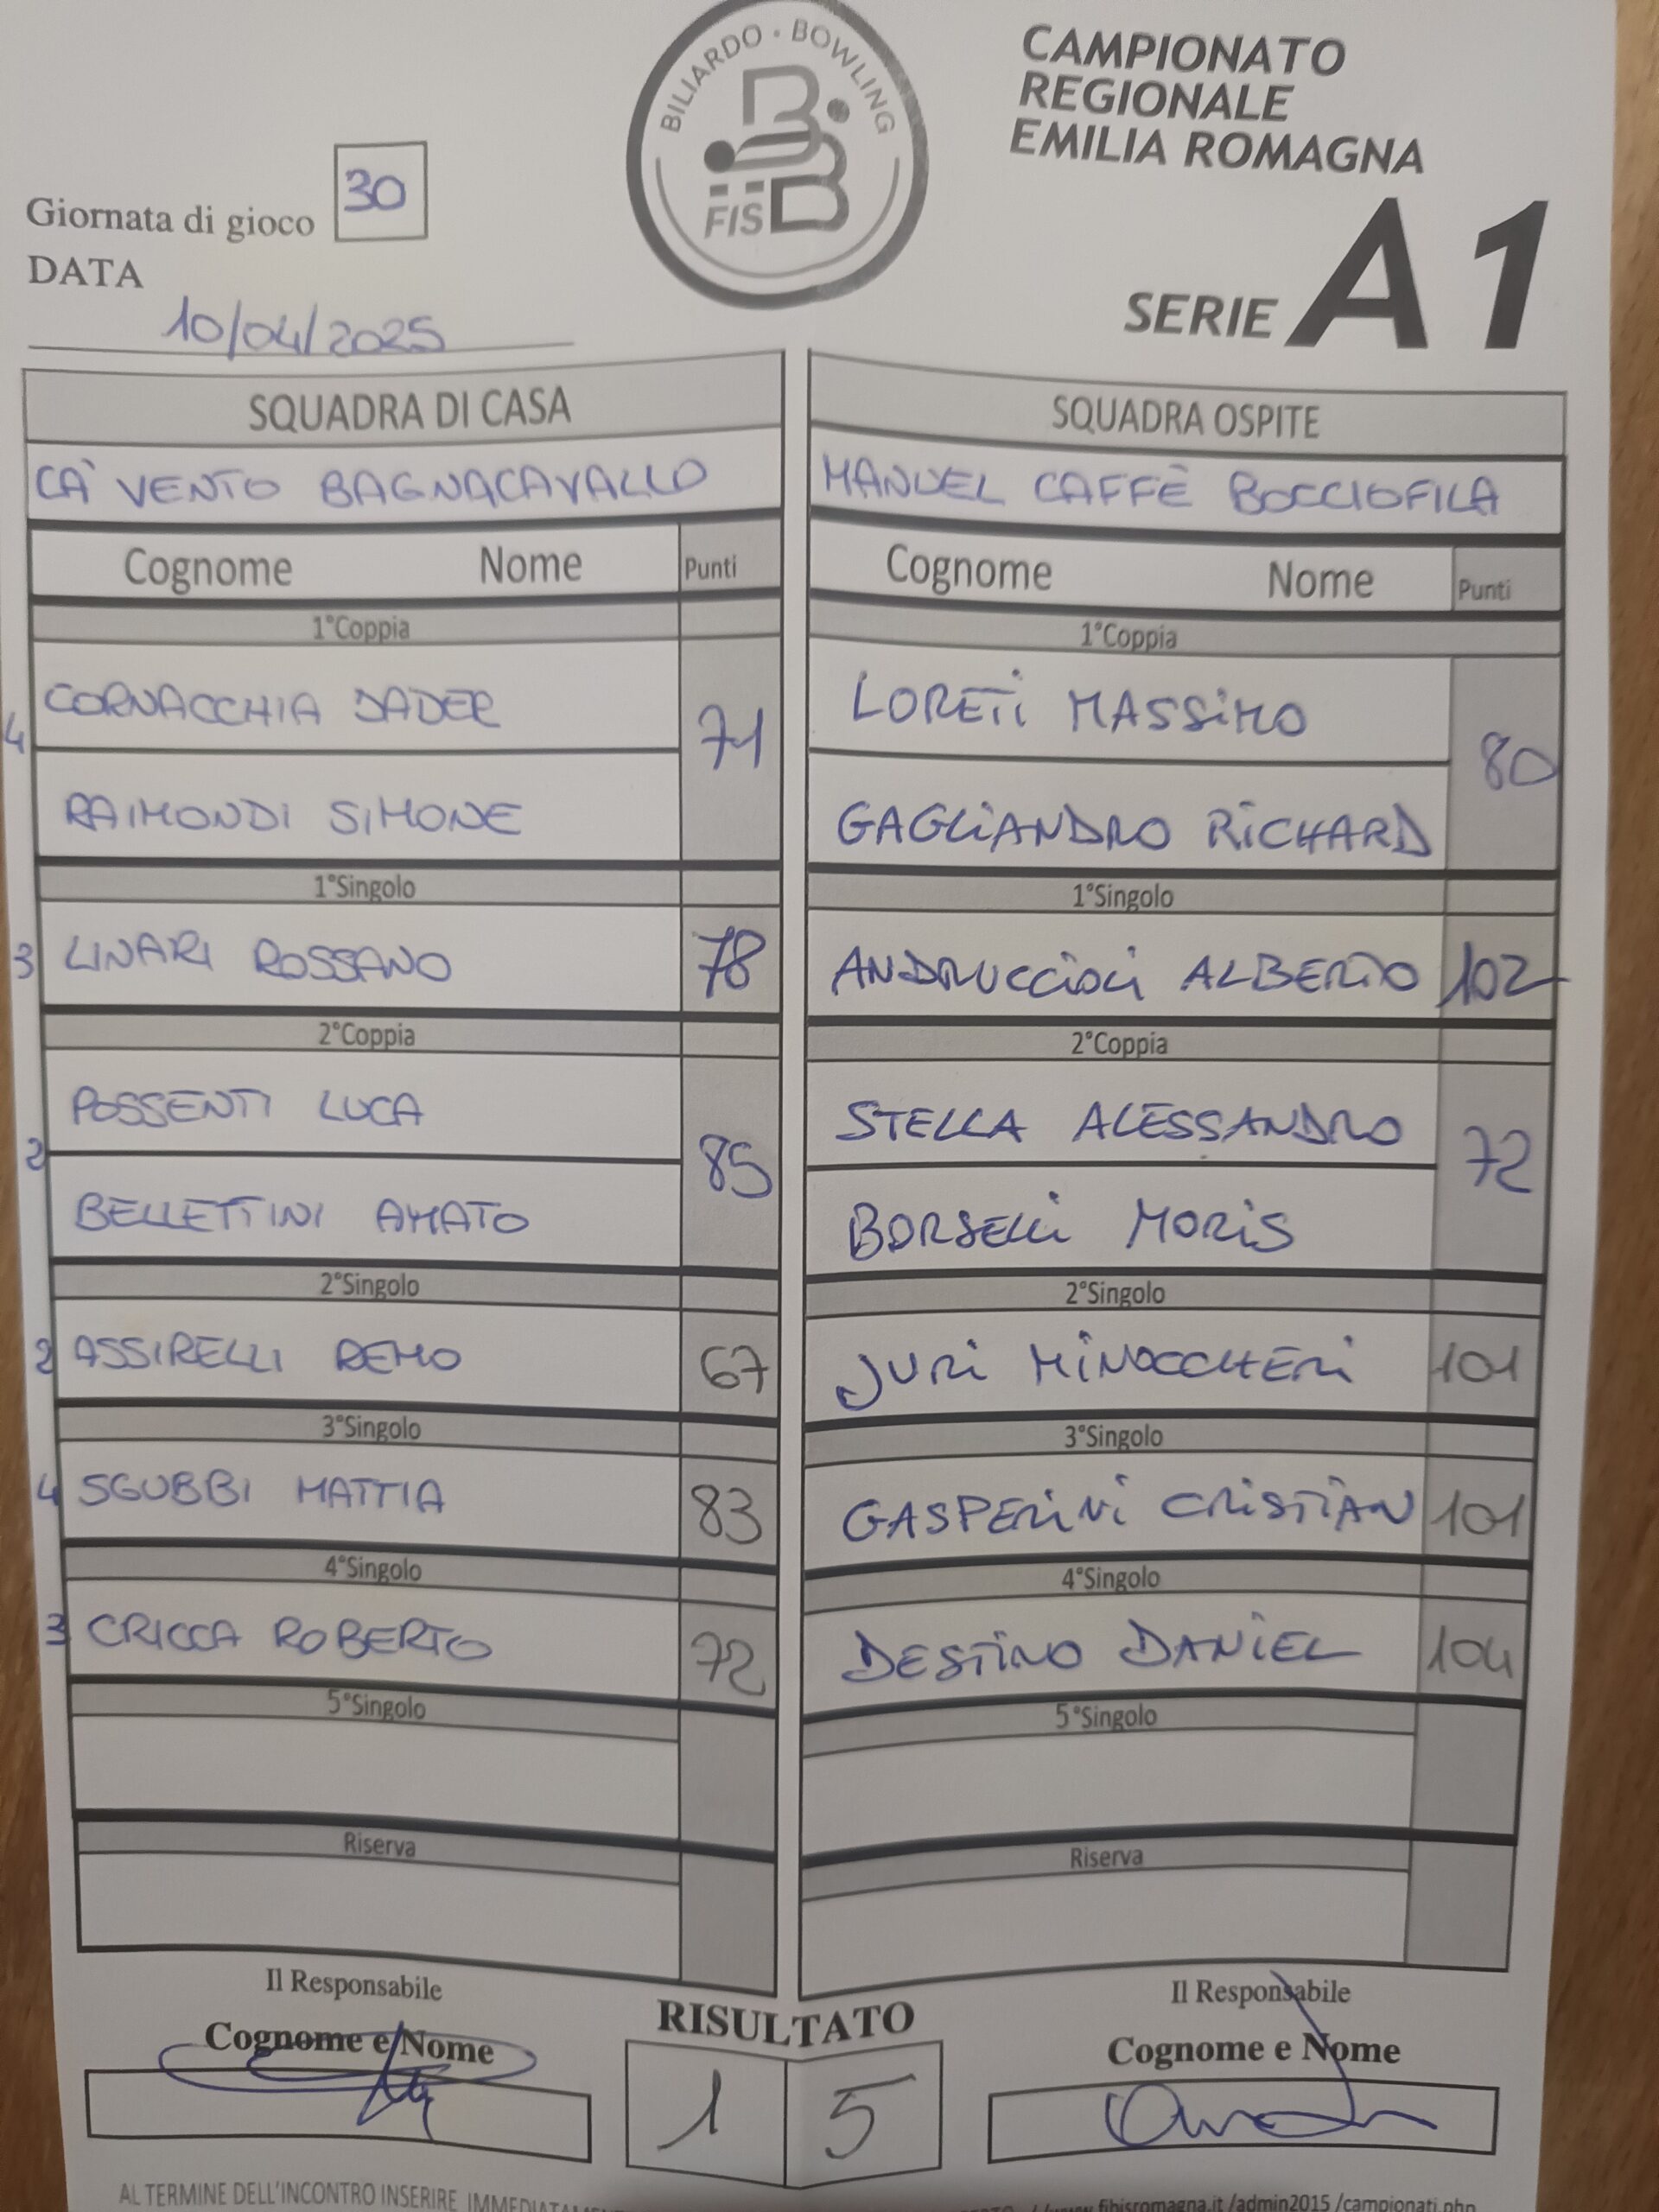 BILIARDO · BOWLING
FISBB
CAMPIONATO
REGIONALE
EMILIA ROMAGNA
SERIE A1
Giornata di gioco 30
DATA
10/04/2025
SQUADRA DI CASA
CA' VENTO BAGNACAVALLO
Cognome Nome Punti
1°Coppia
4 CORNACCHIA DADER 71
RAIMONDI SIMONE
1°Singolo
3 LINARI ROSSANO 78
2°Coppia
POSSENTI LUCA
2 85
BELLETTINI AMATO
2°Singolo
2 ASSIRELLI REMO 67
3°Singolo
4 SGUBBI MATTIA 83
4°Singolo
3 CRICCA ROBERTO 72
5°Singolo
Riserva
Il Responsabile
Cognome e Nome
SQUADRA OSPITE
MANUEL CAFFÈ BOCCIOFILA
Cognome Nome Punti
1°Coppia
LORETI MASSIMO 80
GAGLIANDRO RICHARD
1°Singolo
ANDRUCCIOLI ALBERTO 102
2°Coppia
STELLA ALESSANDRO 72
BORSELLI MORIS
2°Singolo
JURI MINOCCHERI 101
3°Singolo
GASPERINI CRISTIAN 101
4°Singolo
DESTINO DANIEL 104
5°Singolo
Riserva
Il Responsabile
Cognome e Nome
RISULTATO
1 5
AL TERMINE DELL'INCONTRO INSERIRE
fibisromagna.it /admin2015 /campionati.php